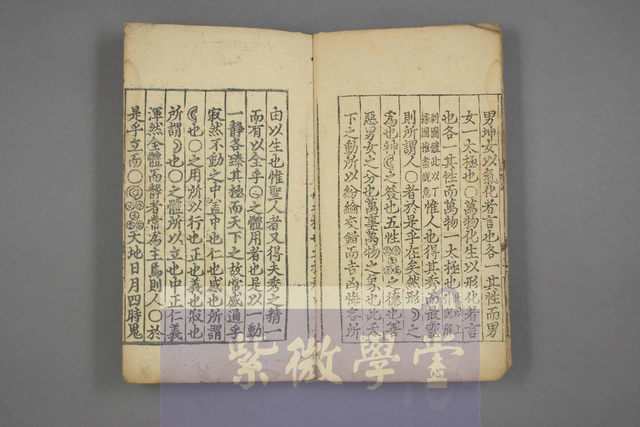 男坤女以氣化者言也各一其性而男
女一太極也○萬物化生以形化者言
也各一其性而萬物一太極也
惟人也得其秀而最靈
則所謂人○者於是乎在矣然形之
為也神之發也五性之德也善
惡男女之分也萬事萬物之象也此天
下之動所以紛綸交錯而吉凶悔吝所
由以生也惟聖人者又得夫秀之精一
而有以全乎之體用者也是以一動
一靜各臻其極而天下之故常感通乎
寂然不動之中蓋中也仁也感也所謂
也○之用所以行也正也義也寂也
所謂也○之體所以立也中正仁義
渾然全體而靜者常為主焉則人○於
是乎立而○天地日月四時鬼
紫微學堂